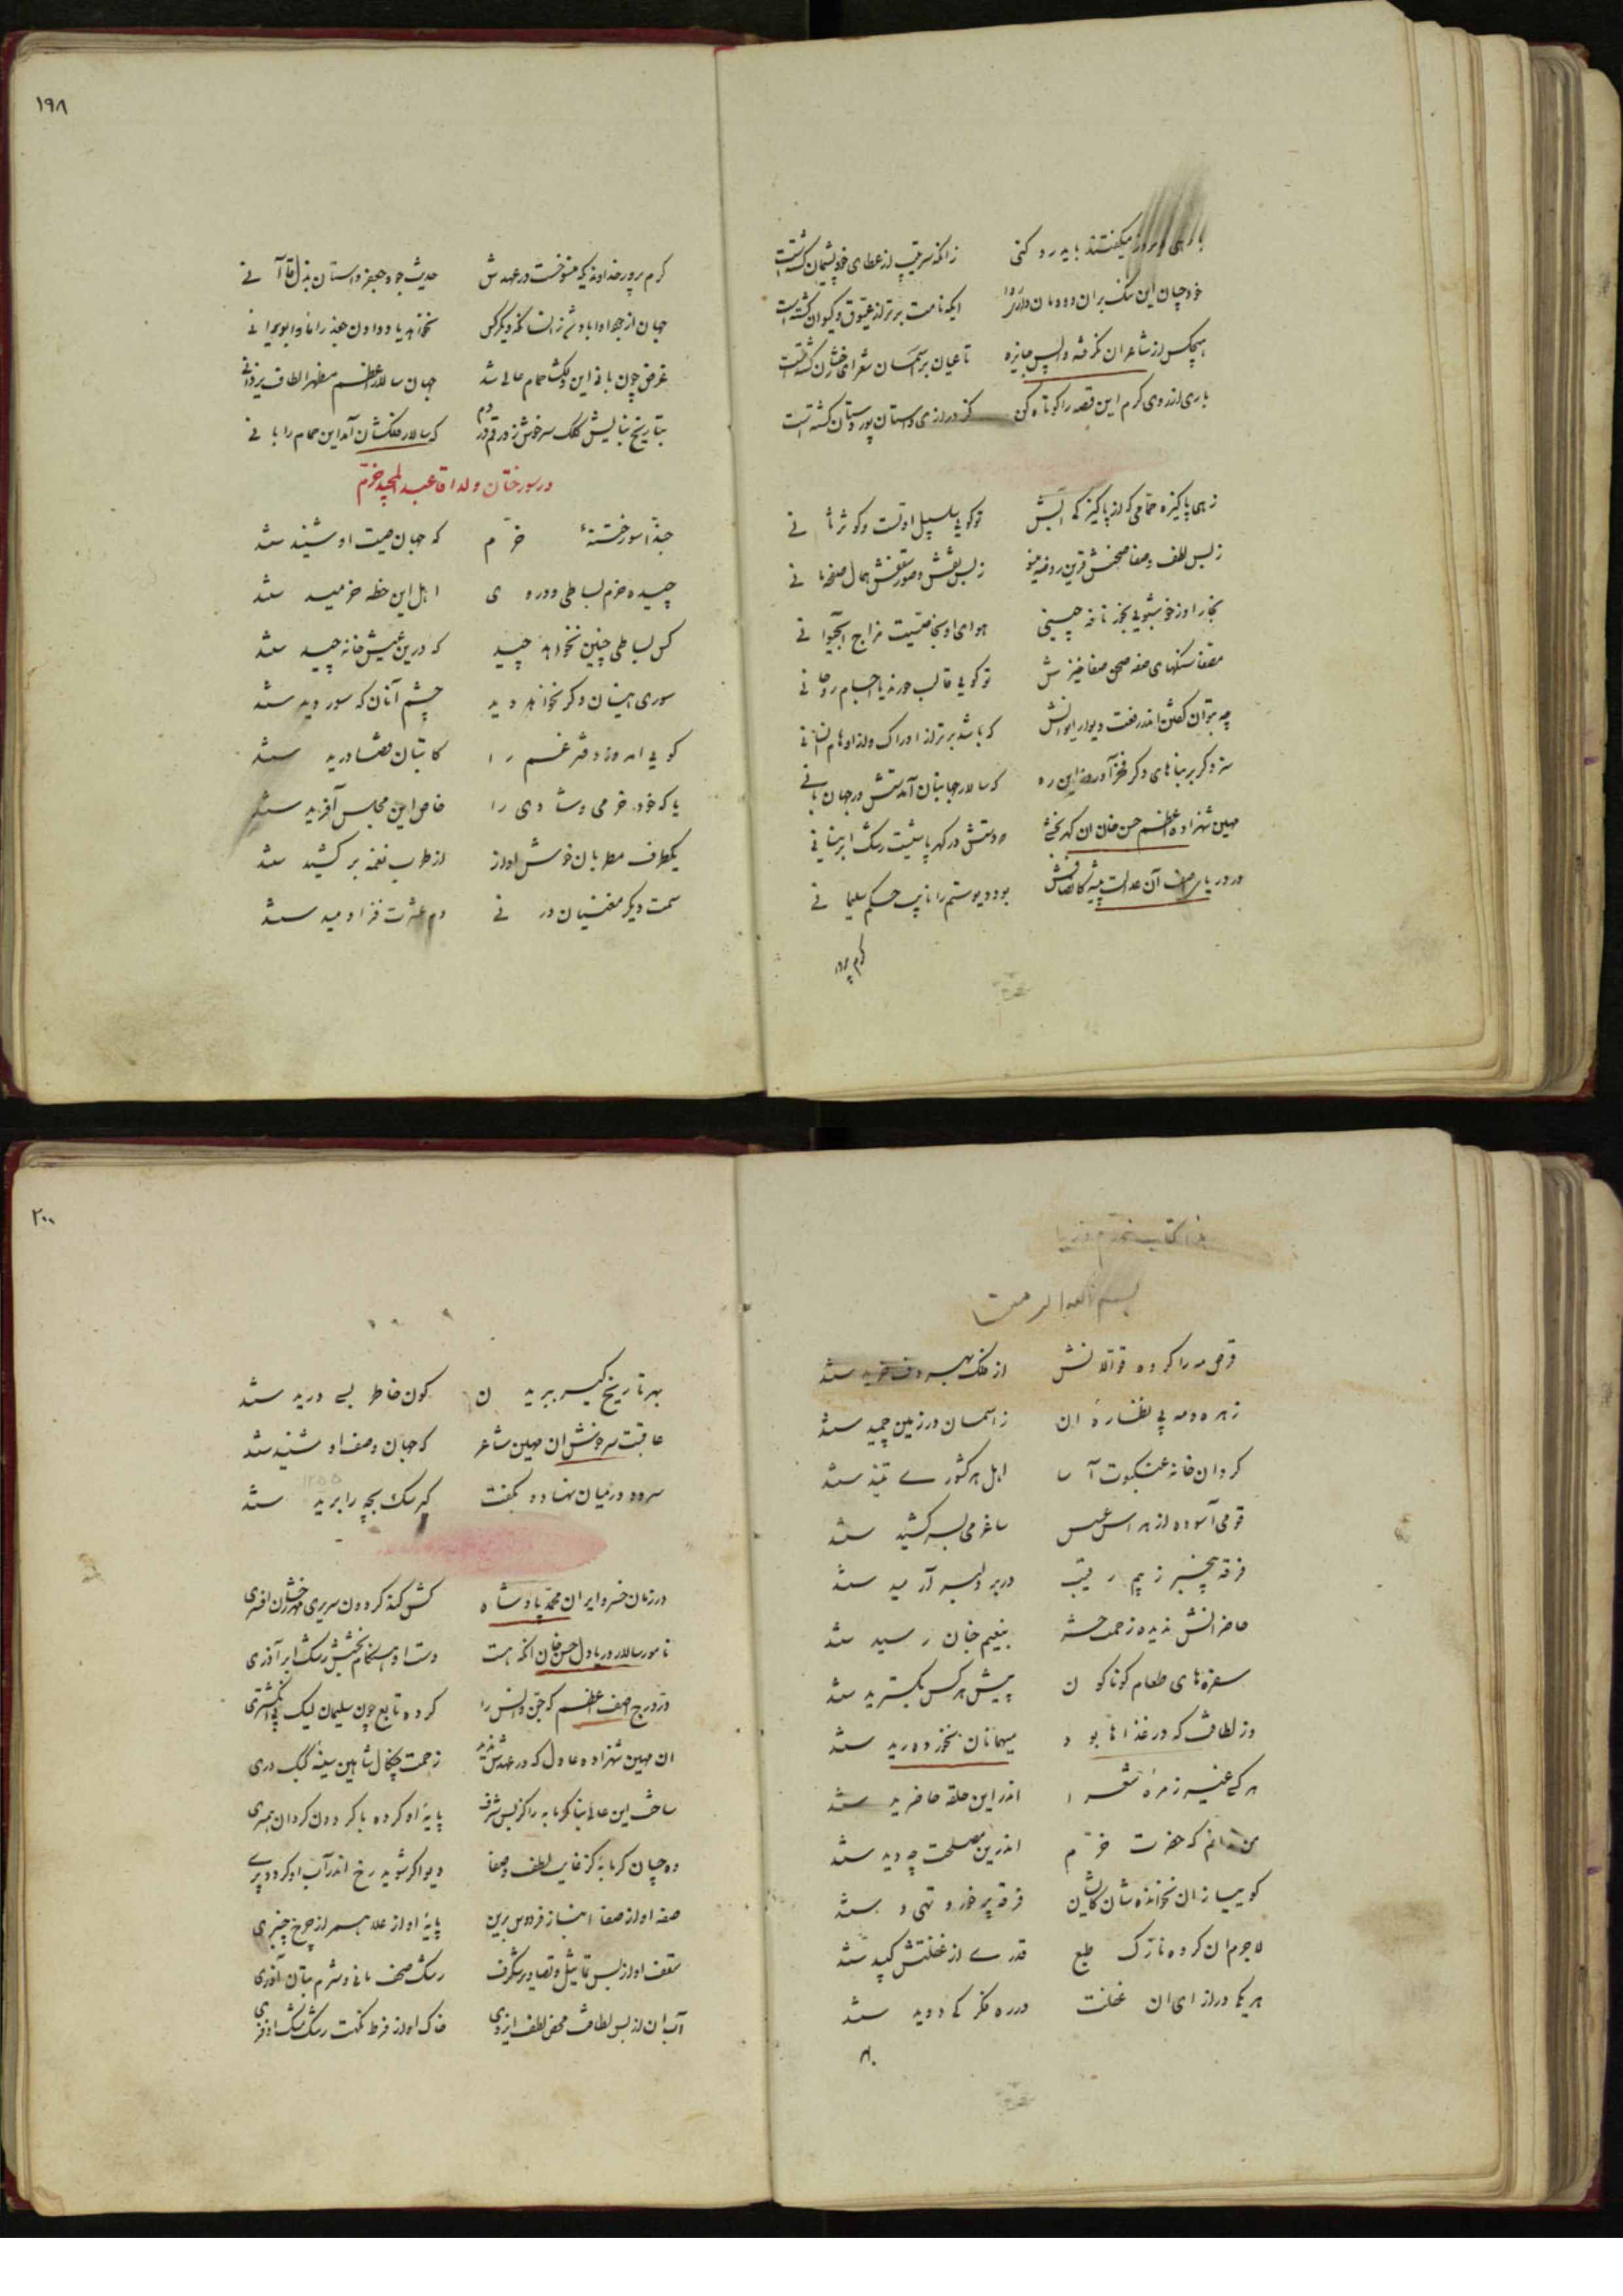 ۱۹۸
زانکه سرقیب از عطای خود پشیمان گشته است
ایکه نامت برتر از عیوق و کیوان گشته است
هیچکس از شاعران نگرفته واپس جایزه تا عیان بر آسمان شعرای رخشان گشته است
باری از روی کرم این قصه را کوتاه کن کز درازی داستان پور دستان گشته است
زهی پاکیزه حمامی که از پاکیزگی آبش تو گویی سلسبیل اولست و کوثر ثانی
ز بس لطف و صفا صحنش قرین روضه مینو ز بس نقش و صور سقفش همال صفحه مانی
بخار او ز خوشبویی بخور نافه چینی هوای او بخاصیت مزاج آب حیوانی
مصفا سنگهای صفه صحن صفا خیزش تو گویی قالب حورند یا اجسام روحانی
چه بتوان گفتن اندر رفعت دیوار ایوانش که باشد برتر از ادراک و از اوهام انسانی
سزد گر بر بناهای دگر فخر آورد زین ره که سالار جهانبان آمدستش در جهان بانی
مهین شهزاده اعظم حسن خان آن گهر بخشی که دستش در گهر پاشیست رشک ابر نیسانی
بود دیو ستم را نایب حکم سلیمانی
کرم پرور
کرم پرور خداوندیکه منسوخست در عهدش حدیث جود جعفر داستان بذل قاآنی
جهان از جود او آباد
غرض چون بانی این دلکشا حمام عالی شد جهان سالار اعظم مظهر الطاف یزدانی
بتاریخ بنایش کلک سرخوش زد رقم در دم که سالار ملکشان آمد این حمام را بانی
در سور ختان ولد آقا عبدالمجید خرم
حبذا سور ختنهٔ خرم که جهان صیت او شنید ستد
چیده خرم بساطی و در وی اهل این خطه خرمید ستد
کس بساطی چنین نخواهد چید که درین عیش خانه چید ستد
سوری اینسان دگر نخواهد دید چشم آنان که سور دید ستد
گویی امروز دفتر غم را کاتبان قضا درید ستد
یا که خود خرمی و شادی را خاص این مجلس آفرید ستد
یکطرف مطربان خوش آواز از طرب نغمه بر کشید ستد
سمت دیگر مغنیان در نی دم عشرت فزا دمید ستد
۲۰۰
بسم الله الرحمن
قرص مه را گروه قوالانش از فلک بهر دف خرید ستد
زهره و مه پی نظاره آن ز آسمان در زمین چمید ستد
گرد آن خانه عنکبوت آسا اهل هر کشوری تنید ستد
قومی آسوده از هراس عسس ساغر می بسر کشید ستد
فرقه بیخبر ز بیم رقیب در بر دلبر آرمید ستد
حاضرانش ندیده زحمت حشر بنعیم جنان رسید ستد
سفره های طعام گوناگون پیش هر کس بگسترید ستد
وز لطافت که در غذاها بود میهمانان نخورده رید ستد
هر کسی غیر زمرهٔ شعرا اندر این حلقه حاضرید ستد
من ندانم که حضرت خرم اندرین مصلحت چه دید ستد
گوییا زان نخوانده شان کاین فرقه پر خور و تهی دید ستد
لاجرم آن گروه نازک طبع قدری از غفلتش کپید ستد
هر یکی در ازای آن غفلت در ره فکر کی دوید ستد
بهر
بهر تاریخ کیر ببریدن کون خاطر بسی درید ستد
عاقبت سرخوش آن مهین شاعر که جهان وصف او شنید ستد
سر در میان نهاده بگفت کیر سک بچه را برید ستد
۱۲۵۵
در زمان خسرو ایران محمد پادشاه کش کند گردون سریری مهر رخشان افسری
نامور سالار دریا دل حسن خان آنکه هست دست او هنگام بخشش رشک ابر آذری
آصف اعظم که جن و انس را کرده تابع چون سلیمان لیک بی انگشتری
آن مهین شهزاده عادل که در عهدش ندید زحمت چنگال شاهین سینه کبک دری
ساخت این عالی بنا گرمابه را کز بس شرف پایهٔ او کرده با گردون گردان همسری
وه چسان گرمابهٔ کز غایت لطف و صفا دیو اگر شوید رخ اندر آب او گردد پری
صفه او از صفا انباز فردوس برین پایهٔ او از علا همسر از چرخ چنبری
سقف او از بس تماثیل و تصاویر شگرف رشک صحف مانی و شرم بتان آذری
آب آن از بس لطافت محض لطف ایزدی خاک او از فرط نکهت رشک مشک اذفری